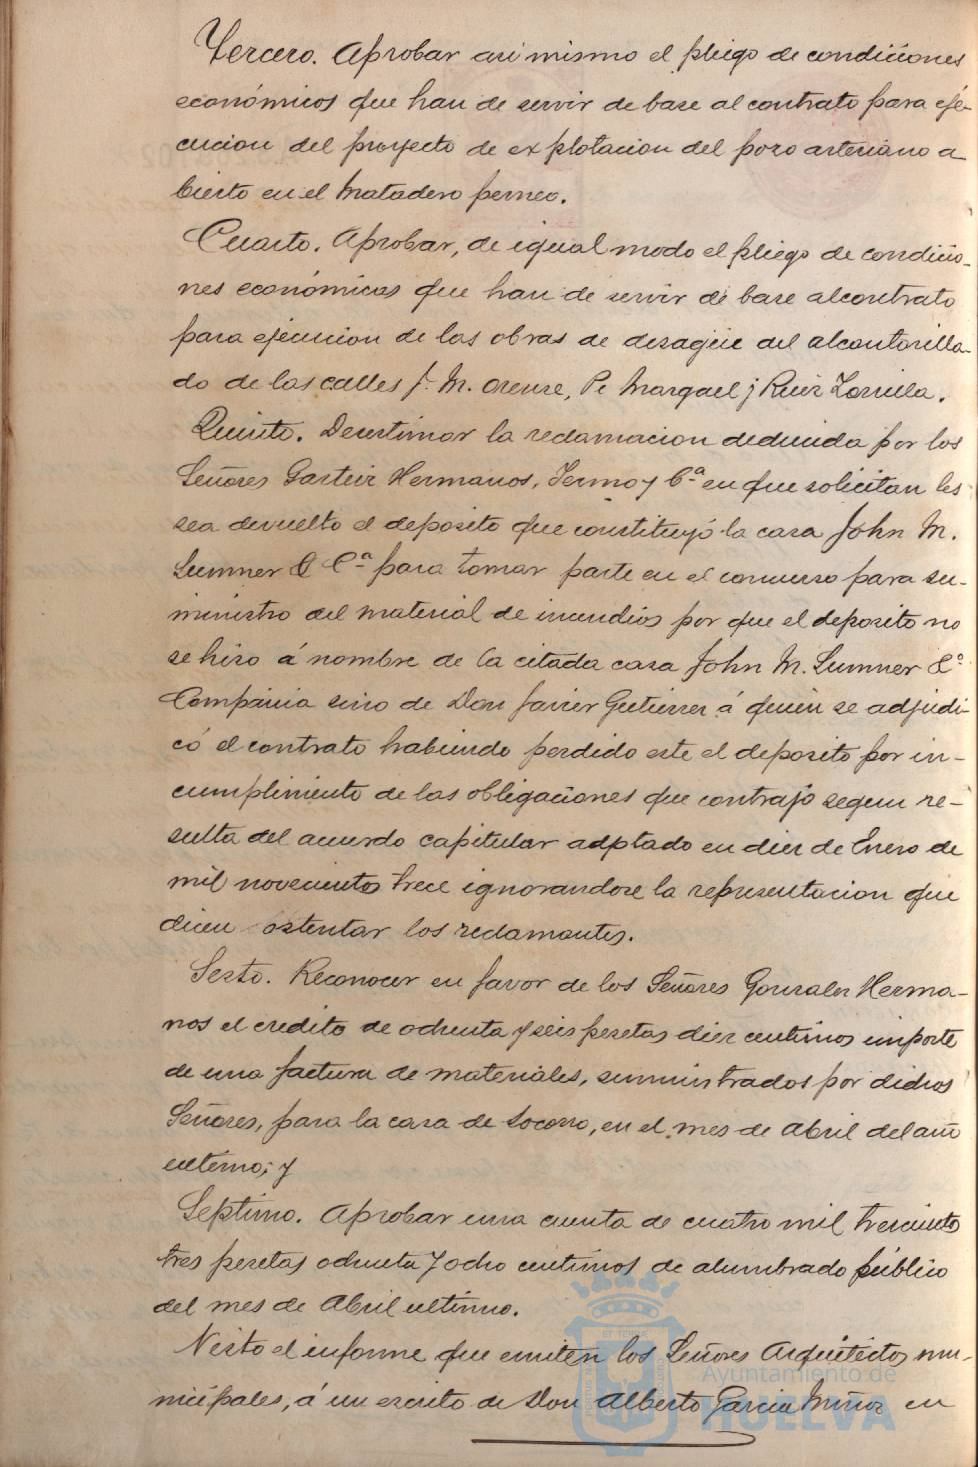 Tercero. Aprobar asi mismo el pliego de condiciones
económicos que han de servir de base al contrato para eje-
cucion del proyecto de explotacion del pozo artesiano a
bierto en el Matadero perneo.
Cuarto. Aprobar, de igual modo el pliego de condicio-
nes económicas que han de servir de base al contrato
para ejecucion de las obras de desagüe del alcantarilla-
do de las calles J. M. Orense, Pi Margall y Ruiz Zorrilla.
Quinto. Desestimar la reclamacion deducida por los
Señores Hermanos, y Cª en que solicitan les
sea devuelto el deposito que constituyó la casa John M.
Sumner & Cª para tomar parte en el concurso para su-
ministro del material de incendios por que el deposito no
se hizo á nombre de la citada casa John M. Sumner &ª
Compañia sino de Don Javier Gutierrez á quien se adjudi-
có el contrato habiendo perdido este el deposito por in-
cumplimiento de las obligaciones que contrajo segun re-
sulta del acuerdo capitular adptado en diez de Enero de
mil novecientos trece ignorandose la representacion que
dicen ostentar los reclamantes.
Sesto. Reconocer en favor de los Señores Gonzalez Herma-
nos el credito de ochenta y seis pesetas diez centimos importe
de una factura de materiales, suministrados por dichos
Señores, para la casa de socorro, en el mes de Abril del año
ultimo; y
Septimo. Aprobar una cuenta de cuatro mil trescientos
tres pesetas ochenta y ocho centimos de alumbrado público
del mes de Abril ultimo.
Visto el informe que emiten los Señores Arquitectos mu-
nicipales, á un escrito de Don Alberto Garcia Muñoz en
Ayuntamiento de
HUELVA